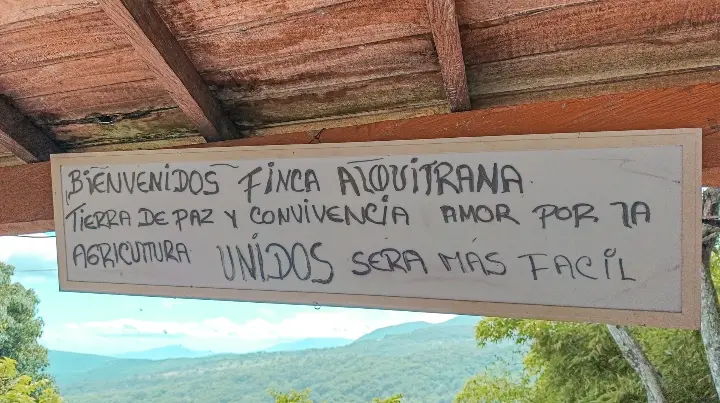 BIENVENIDOS FINCA ALQUITRANA
TIERRA DE PAZ Y CONVIVENCIA AMOR POR LA
AGRICUTURA UNIDOS SERA MÁS FACIL